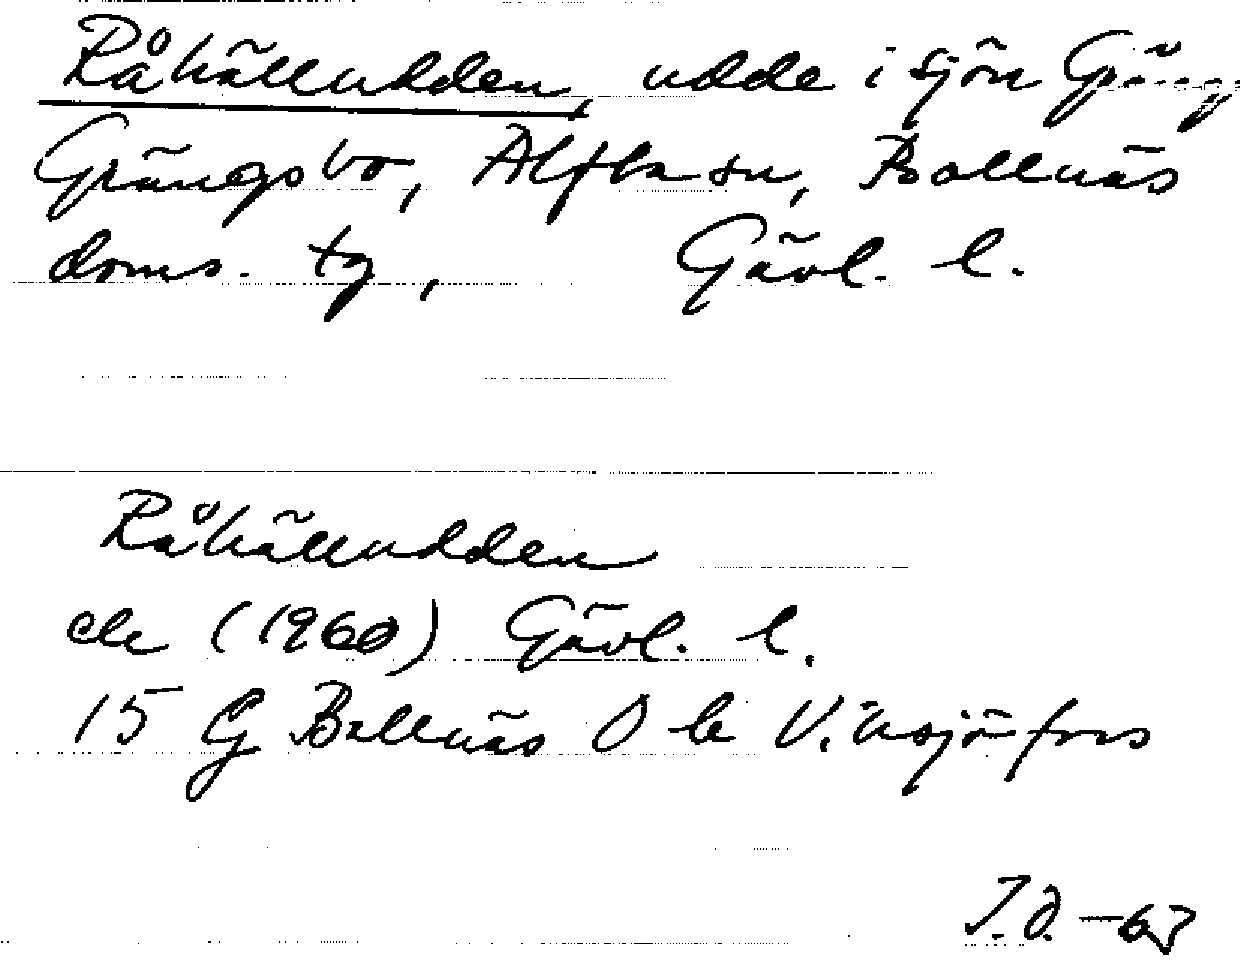 Råhälludden, udde i sjön Gräng
Grängsbo, Alfta sn, Bollnäs
doms. tg, Gävl. l.
Råhälludden
ek (1960) Gävl. l.
15 G Bollnäs O b Vinsjöfors
I.O. -63